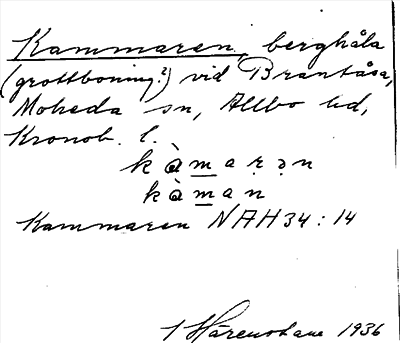 Kammaren, berghåla
(grottboning?) vid Brantåsa,
Moheda sn, Allbo hd,
Kronob. l.
kàmarən
kàman
Kammaren NAH 34:14
1936